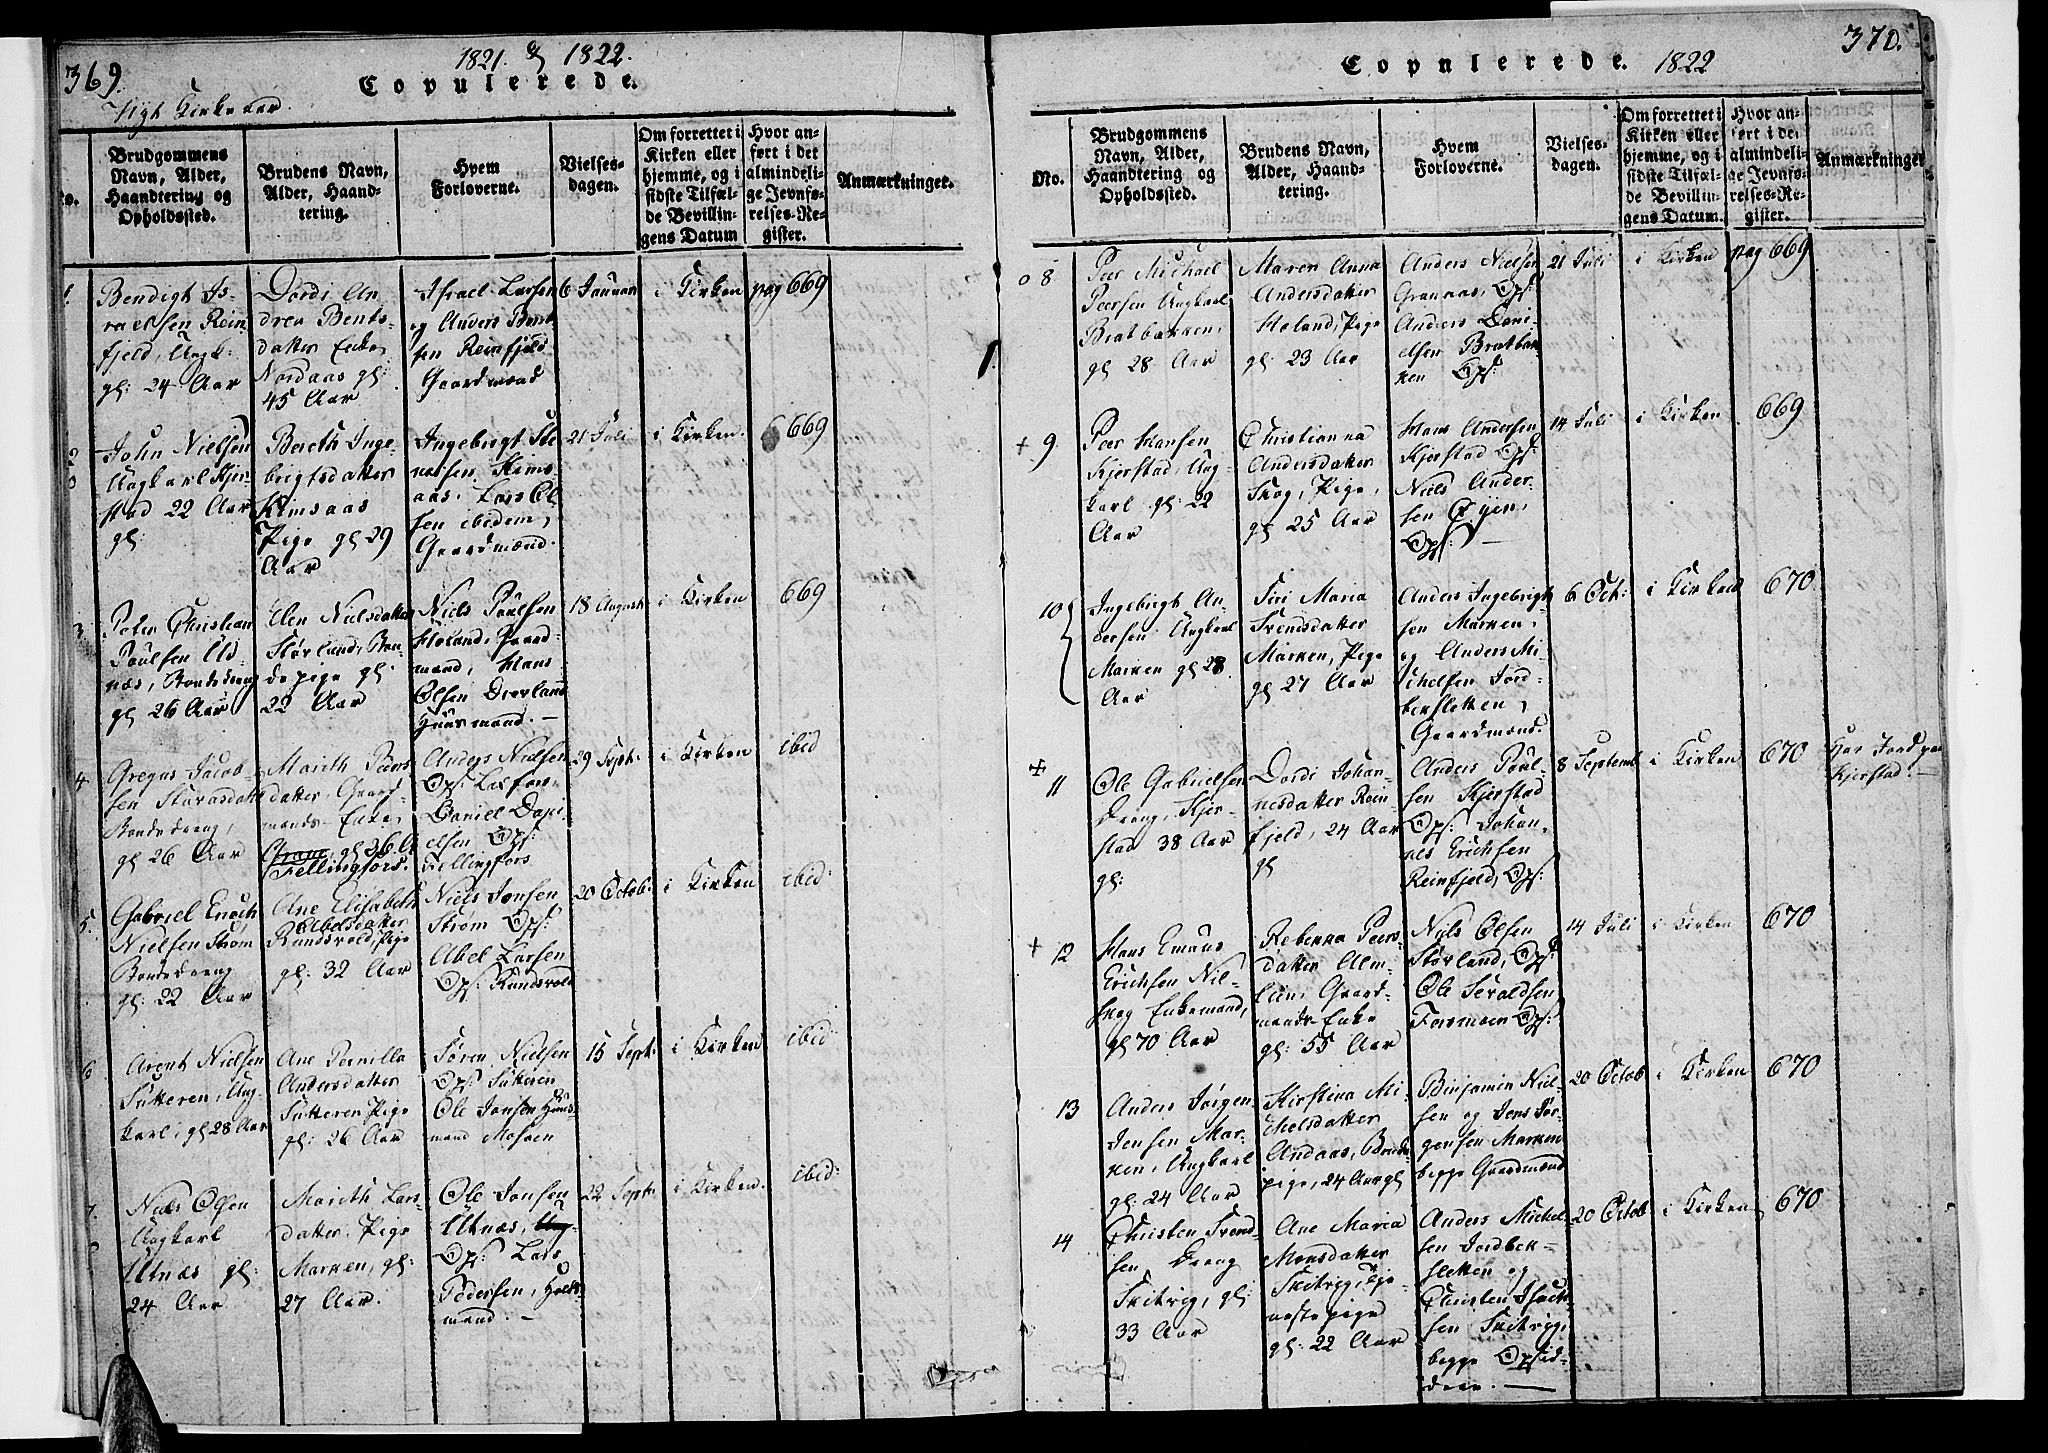 369.
1821. & 1822.
Copulerede.
Nyt Kirkeaar.
No.
Brudgommens
Navn, Alder,
Haandtering og
Opholdssted.
Brudens Navn,
Alder, Haand-
tering.
Hvem
Forloverne.
Vielses-
dagen.
Om forrettet i
Kirken eller
hjemme, og i
sidste Tilfæl-
de Bevillin-
gens Datum
Hvor an-
ført i det
almindeli-
ge Jevnfø-
relses-Re-
gister.
Anmærkninger.
1.
Bendigt Is-
raelsen Rein-
fjeld, Ungk:
gl: 24 Aar
Dordi An
drea Bents-
datter Enke,
Nordaas gl:
45 Aar
Israel Larsen
og Anders Bent
sen Reinfjeld
Gaardmænd
6 Januar
i Kirken
pag 669
2
John Nielsen
Ungkarl Kjer-
stad 22 Aar
gl:
Bereth Inge-
brigtsdatter
Kimsaas
Pige gl 29
Aar
Ingebrigt Ste
nersen, Kims
aas. Lars Ol
sen ibidem,
Gaardmænd.
21 Juli
i Kirken.
669
3
Peter Christian
Poulsen Ud-
næs, Bondedreng
gl 26 Aar
Elen Nielsdatter
Störland, Bon-
depige gl:
22 Aar
Niels Poulsen
Holand, Gaard-
mand, Hans
Olsen Dverland
Huusmand. —
18 August
i Kirken
669
4
Gregus Jacob-
sen Storasdatter
Bondedreng,
gl 26 Aar
Marith Peers
datter, Gaard-
mands Enke,
gl 36 A
Fellingfors.
Anders Nielsen
Ops: Laxfors.
Daniel Dani
elsen Ops:
Fellingfors
29 Sept:
i Kirken
ibid
5
Gabriel Enoch
Nielsen Ström
Bondedreng
gl: 22 Aar
Ane Elisabeth
Abelsdatter
Rundsvold, Pige
gl: 32 Aar
Niels Jonsen
Ström Ops:
Abel Larsen
Ops: Rundsvold
20 Octob:
i Kirken
ibid:
6
Arent Nielsen
Sutteren, Ung-
karl, gl 28 Aar
Ane Pernilla
Andersdatter
Sutteren Pige
gl: 26 Aar
Sören Nielsen
Ops: Sutteren
Ole Jonsen Huus
mand Mosaen
15 Sept:
i Kirken
ibid
7.
Niels Olsen
Ungkarl
Utnæs gl:
24 Aar
Marith Lars
datter, Pige
Marken, gl:
27 Aar.
Ole Jonsen
Utnæs,
Ops: Lars
Pedersen, Huus-
mand. —
22 Sept:
i Kirken.
ibid:
370.
Copulerede. 1822
No.
Brudgommens
Navn, Alder,
Haandtering og
Opholdssted.
Brudens Navn,
Alder, Haand-
tering.
Hvem
Forloverne.
Vielses-
dagen.
Om forrettet i
Kirken eller
hjemme, og i
sidste Tilfæl-
de Bevillin-
gens Datum.
Hvor an-
ført i det
almindeli-
ge Jevnfø-
relses-Re-
gister.
Anmærkninger
8
Peer Michael
Peersen Ungkarl
Bratbakken,
gl 28 Aar
Maren Anna
Andersdatter
Holand, Pige
gl: 23 Aar
Anders Nielsen
Granaas, Ops:
Anders Dani-
elsen Bratbak
ken Ops:
21 Juli
i Kirken
pag 669
+ 9
Peer Hansen
Kjerstad, Ung-
karl gl: 22
Aar
Christianna
Andersdatter
Skog, Pige,
gl 25 Aar
Hans Andersen
Kjerstad Ops:
Niels Ander-
sen Øyen,
Ops: —
14 Juli
i Kirken
669
10
Ingebrigt An-
dersen Ungkarl
Marken gl 28
Aar
Siri Maria
Svendsdatter
Marken, Pige
gl 27 Aar
Anders Ingebrigt
sen Marken,
og Anders Mi
chelsen Jord-
bersletten,
Gaardmænd.
6 Oct:
i Kirken
670
11
Ole Gabrielsen
Dreng, Kjer-
stad 38 Aar
gl:
Dordi Johan-
nesdatter Rein
fjeld, 24 Aar
gl
Anders Poul-
sen Kjerstad
Ops: Johan-
nes Erichsen
Reinfjeld, Ops:
8 Septemb
i Kirken
670
Har Jord paa
Kjerstad. —
+ 12
Hans Emaus
Erichsen Nil-
skog Enkemand,
gl 70 Aar
Rebekka Peers-
datter Alm-
lien, Gaard-
mands Enke
gl: 55 Aar
Nils Olsen
Störland, Ops:
Ole Sevaldsen
Forsmoen Ops:
14 Juli
i Kirken
670
13
Anders Jörgen
Jensen Mar-
ken, Ungkarl
gl 24 Aar
Kirstina Mi-
chelsdatter
Andaas, Bonde
pige, 24 Aar gl
Binjamin Niel-
sen og Jens Jör-
gensen Marken
begge Gaardmænd
20 Octob
i Kirken
670
14
Christen Svend-
sen Dreng
Skitvig, gl:
33 Aar
Ane Maria
Monsdatter
Skitvig, Tje-
nestepige
gl: 22 Aar
Anders Mickel-
sen Jordbek-
sletten og
Christen Isach-
sen Skitvig,
begge Opsid-
dere. —
20 Octob
i Kirken
670